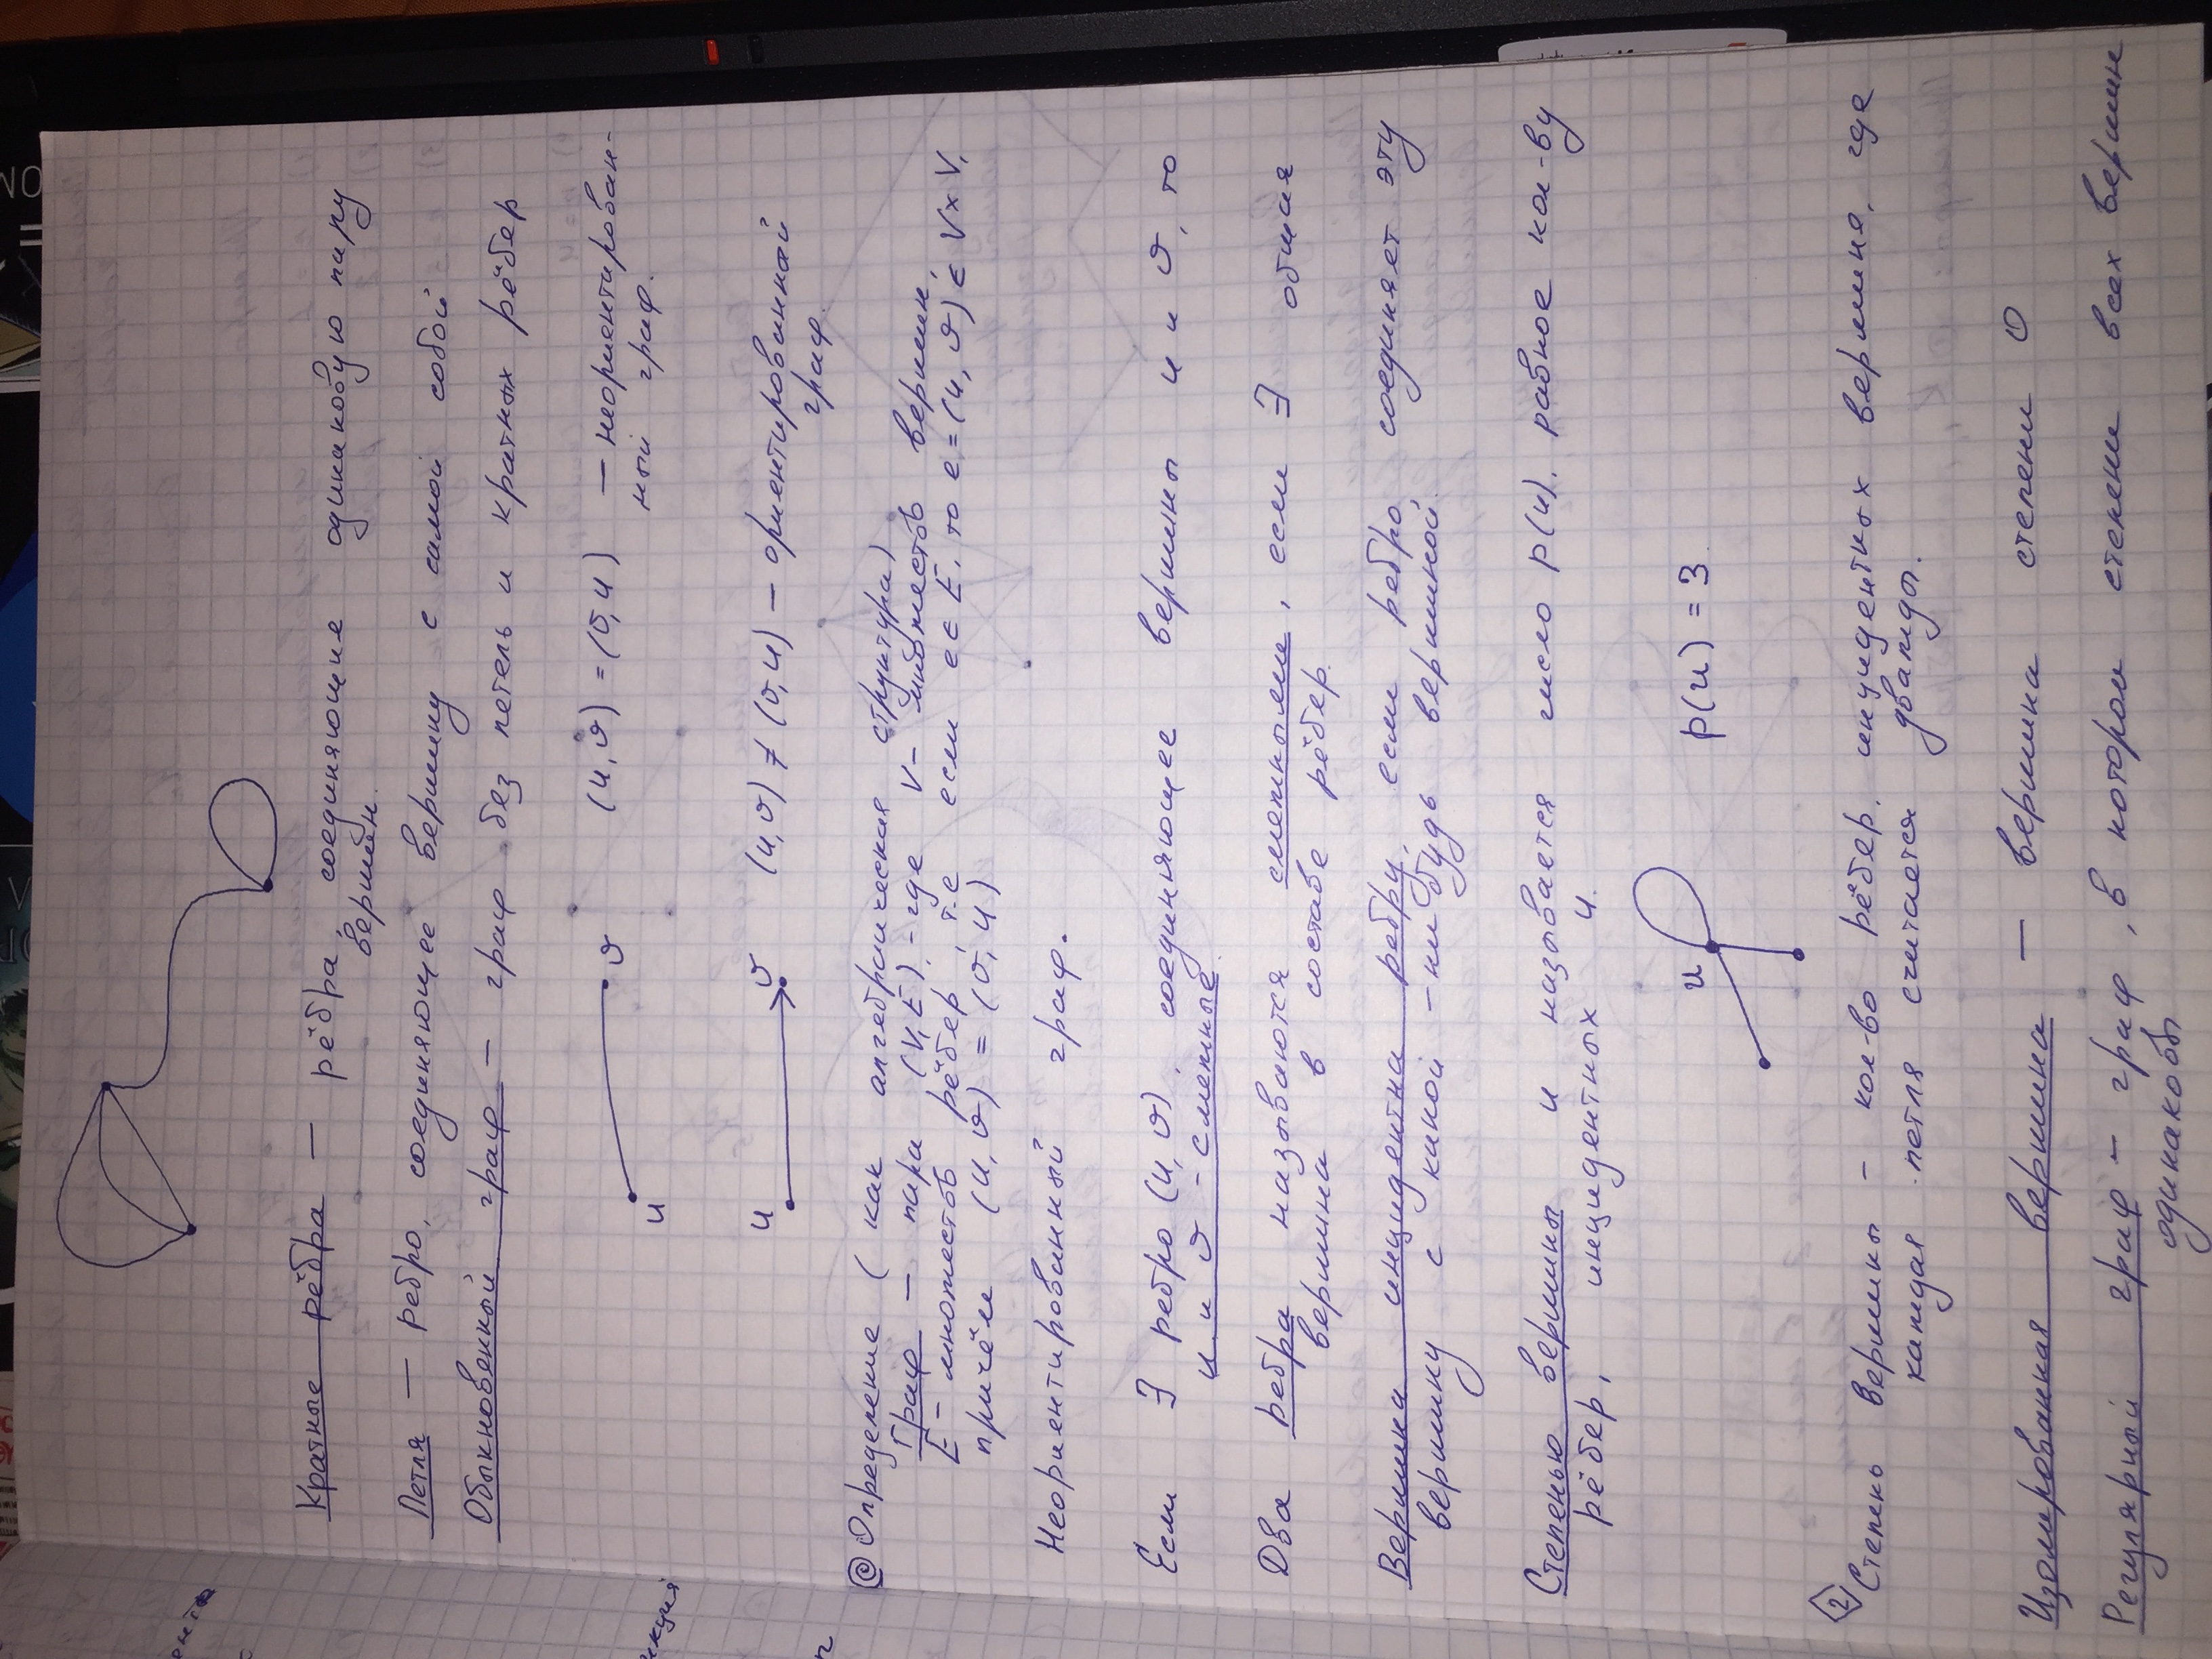 Кратные рёбра — рёбра, соединяющие одинаковую пару
вершин.
Петля — ребро, соединяющее вершину с самой собой
Обыкновенный граф — граф без петель и кратных рёбер
(u, v) = (v, u) — неориентирован-
u v
ный граф.
u v (u, v) ≠ (v, u) — ориентированный
граф.
@ Определение (как алгебраическая структура)
Граф — пара (V, E), - где V - множеств вершин,
E - множеств рёбер, т.е если e ∈ E, то e = (u, v) ∈ V × V,
причём (u, v) = (v, u)
Неориентированный граф.
Если ∃ ребро (u, v), соединяющее вершины u и v, то
u и v - смежные.
Два ребра называются смежными, если ∃ общая
вершина в составе рёбер.
Вершина инцидентна ребру, если ребро соединяет эту
вершину с какой-нибудь вершиной.
Степенью вершины u называется число p(u), равное кол-ву
рёбер, инцидентных u.
u p(u) = 3.
2
Степень вершины - кол-во рёбер, инцидентных вершине, где
каждая петля считается дважды.
Изолированная вершина — вершина степени 0
Регулярный граф - граф, в котором степени всех вершин
одинаковы